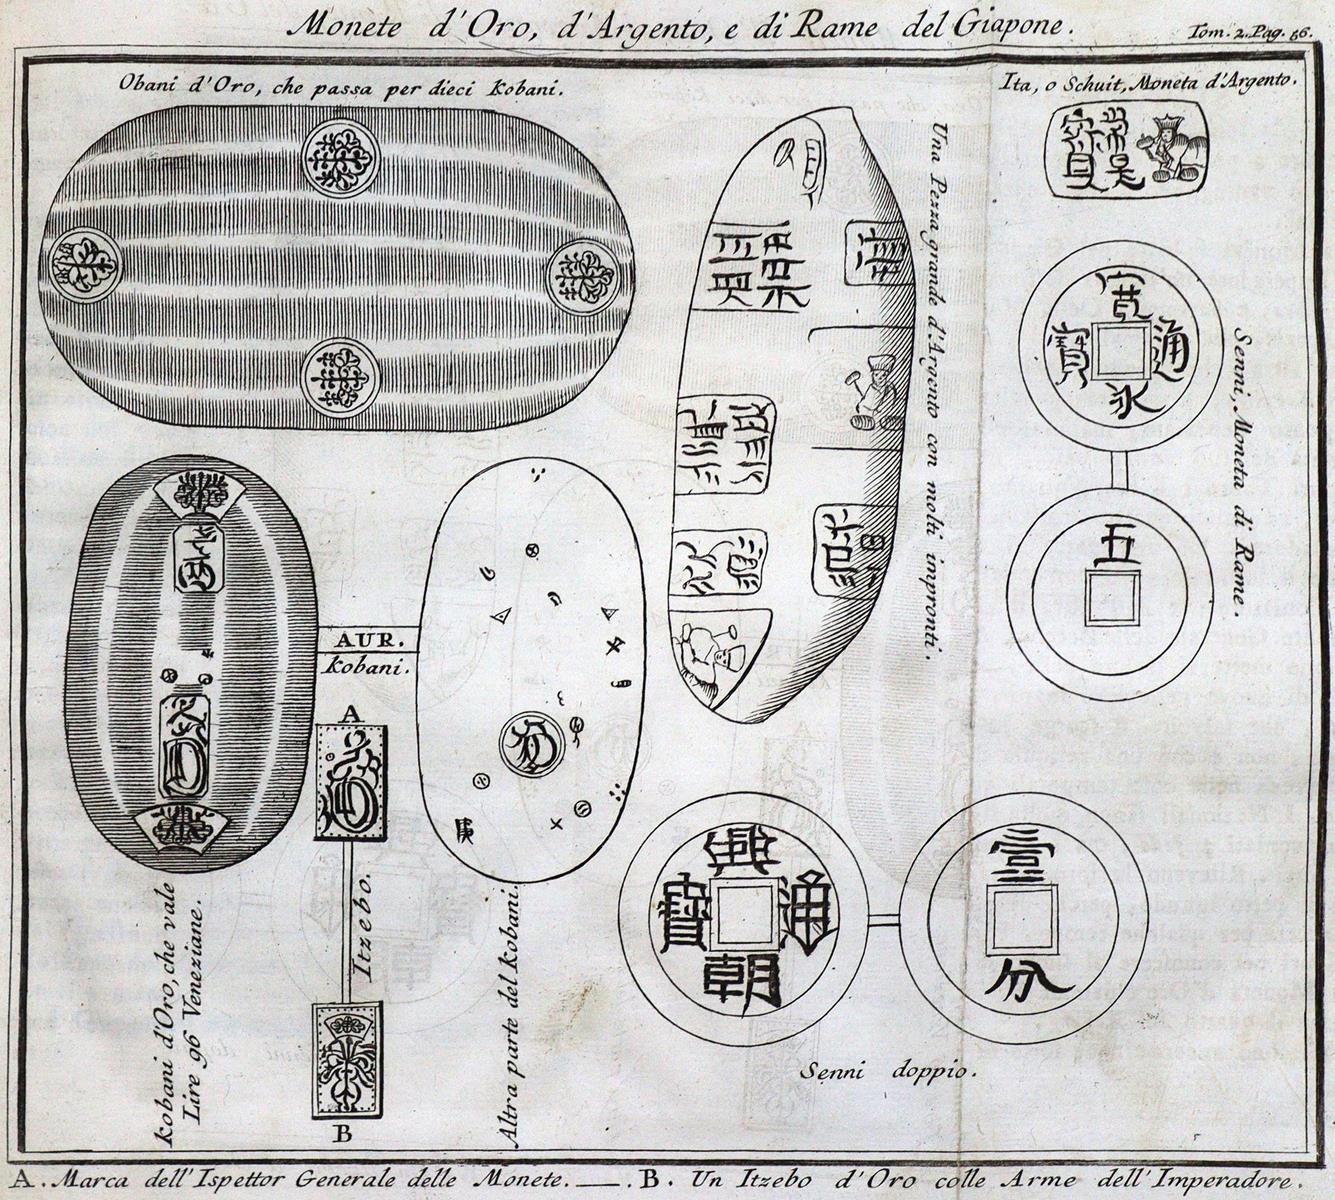 Monete d'Oro, d'Argento, e di Rame del Giapone.
Tom. 2. Pag. 56.
Obani d'Oro, che passa per dieci Kobani.
Ita, o Schuit, Moneta d'Argento.
常是
寳
Una Pezza grande d'Argento con molti impronti.
寛
通
寳
永
Senni, Moneta di Rame.
五
AUR.
Kobani.
A
Itzebo.
B
Kobani d'Oro, che vale
Lire 96 Veneziane
Altra parte del Kobani.
興
通
寳
朝
壹
分
Senni doppio.
A. Marca dell'Ispettor Generale delle Monete. — . B. Un Itzebo d'Oro colle Arme dell'Imperadore.